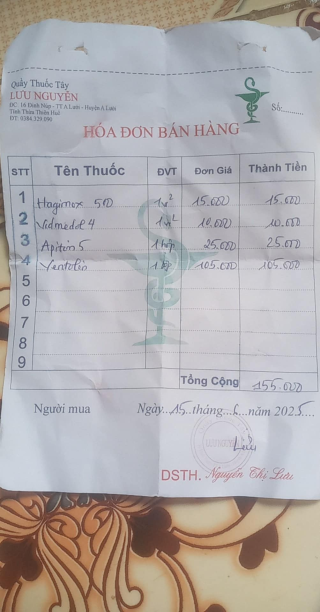 Quầy Thuốc Tây
LƯU NGUYÊN
ĐC: 16 Đinh Núp - TT A Lưới - Huyện A Lưới
Tỉnh Thừa Thiên Huế
ĐT: 0384.529.090
Số:..........
HÓA ĐƠN BÁN HÀNG
STT Tên Thuốc ĐVT Đơn Giá Thành Tiền
1 Hagimox 500 1 vỉ 15.000 15.000
2 Vidmedol 4 1 vỉ 10.000 10.000
3 Apitim 5 1 hộp 25.000 25.000
4 Ventolin 1 105.000 105.000
5
6
7
8
9
Tổng Cộng 155.000
Người mua Ngày...15...tháng...6...năm 2025....
Lưu
DSTH. Nguyễn Thị Lưu